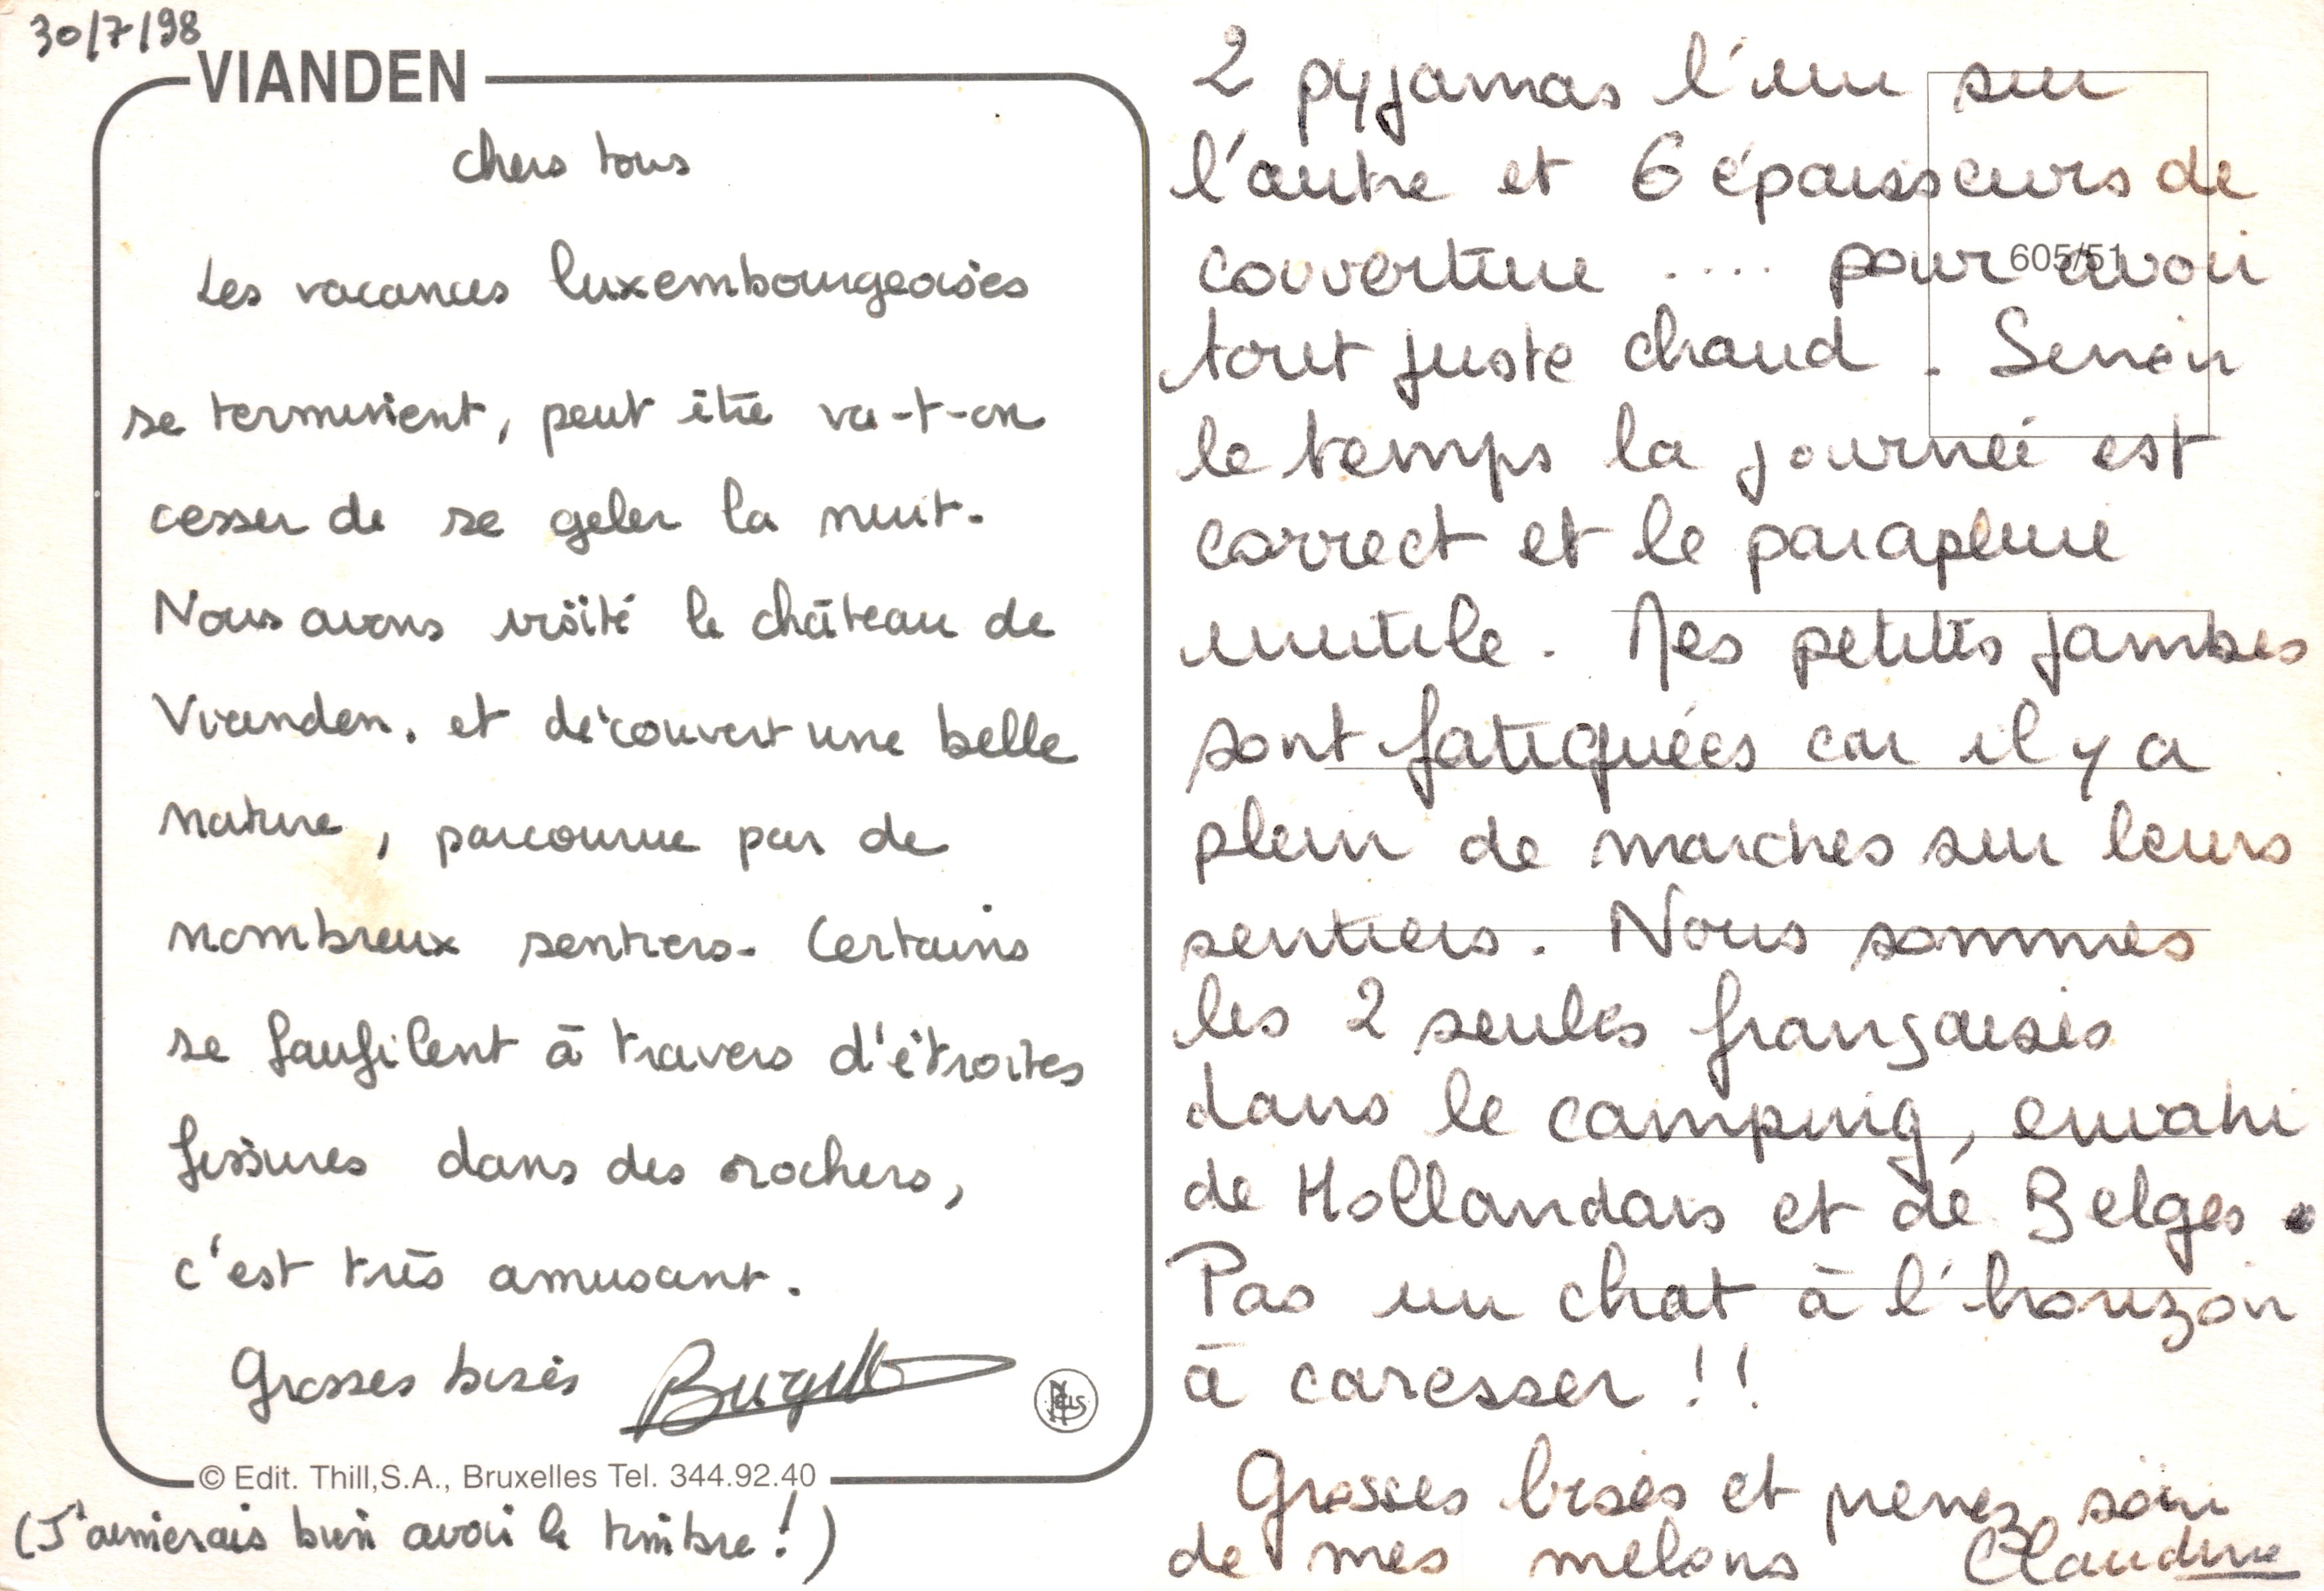 30/7/98
VIANDEN
chers tous
Les vacances luxembourgeoises
se terminent, peut être va-t-on
cesser de se geler la nuit.
Nous avons visité le château de
Vianden. et découvert une belle
nature, parcourue par de
nombreux sentiers. Certains
se faufilent à travers d'étroites
fissures dans des rochers,
c'est très amusant.
Grosses bises
NELS
© Edit. Thill,S.A., Bruxelles Tel. 344.92.40
(J'aimerais bien avoir le timbre!)
2 pyjamas l'un sur
l'autre et 6 épaisseurs de
couverture .... pour avoir
605/51
tout juste chaud. Sinon
le temps la journée est
correct et le parapluie
inutile. Mes petites jambes
sont fatiguées car il y a
plein de marches sur leurs
sentiers. Nous sommes
les 2 seules françaises
dans le camping, envahi
de Hollandais et de Belges.
Pas un chat à l'horizon
à caresser !!
Grosses bises et prenez soin
de mes melons Claudine